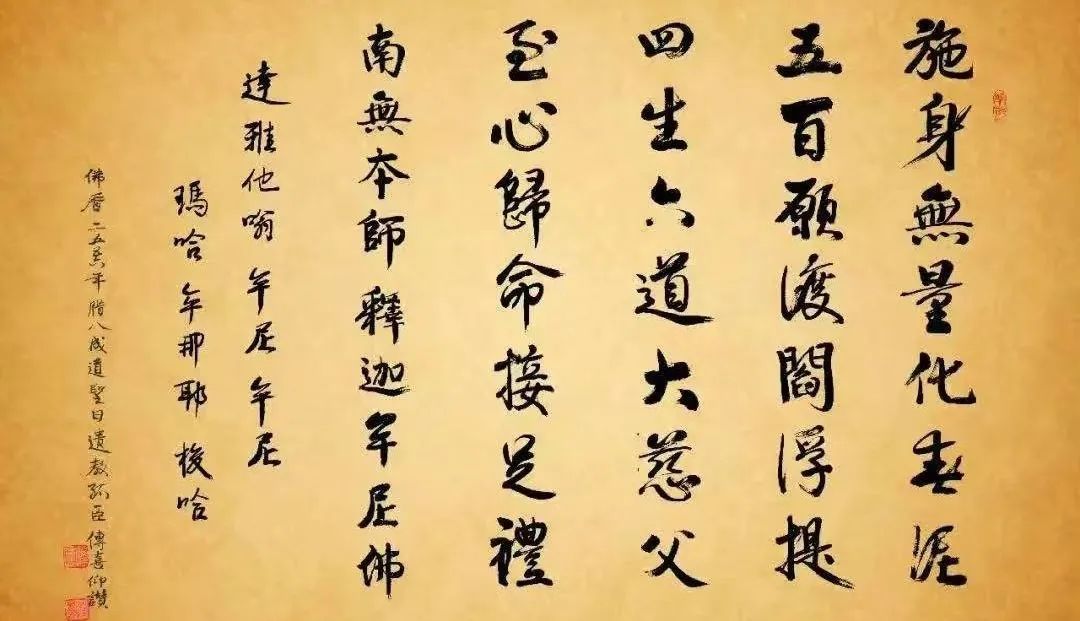 施身無量化春泥
五百願渡閻浮提
四生六道大慈父
至心歸命接足禮
南無本師釋迦牟尼佛
達雅他嗡牟尼牟尼
瑪哈牟那耶梭哈
佛曆二五年臘八成道聖日遺教孤臣傳喜仰讚